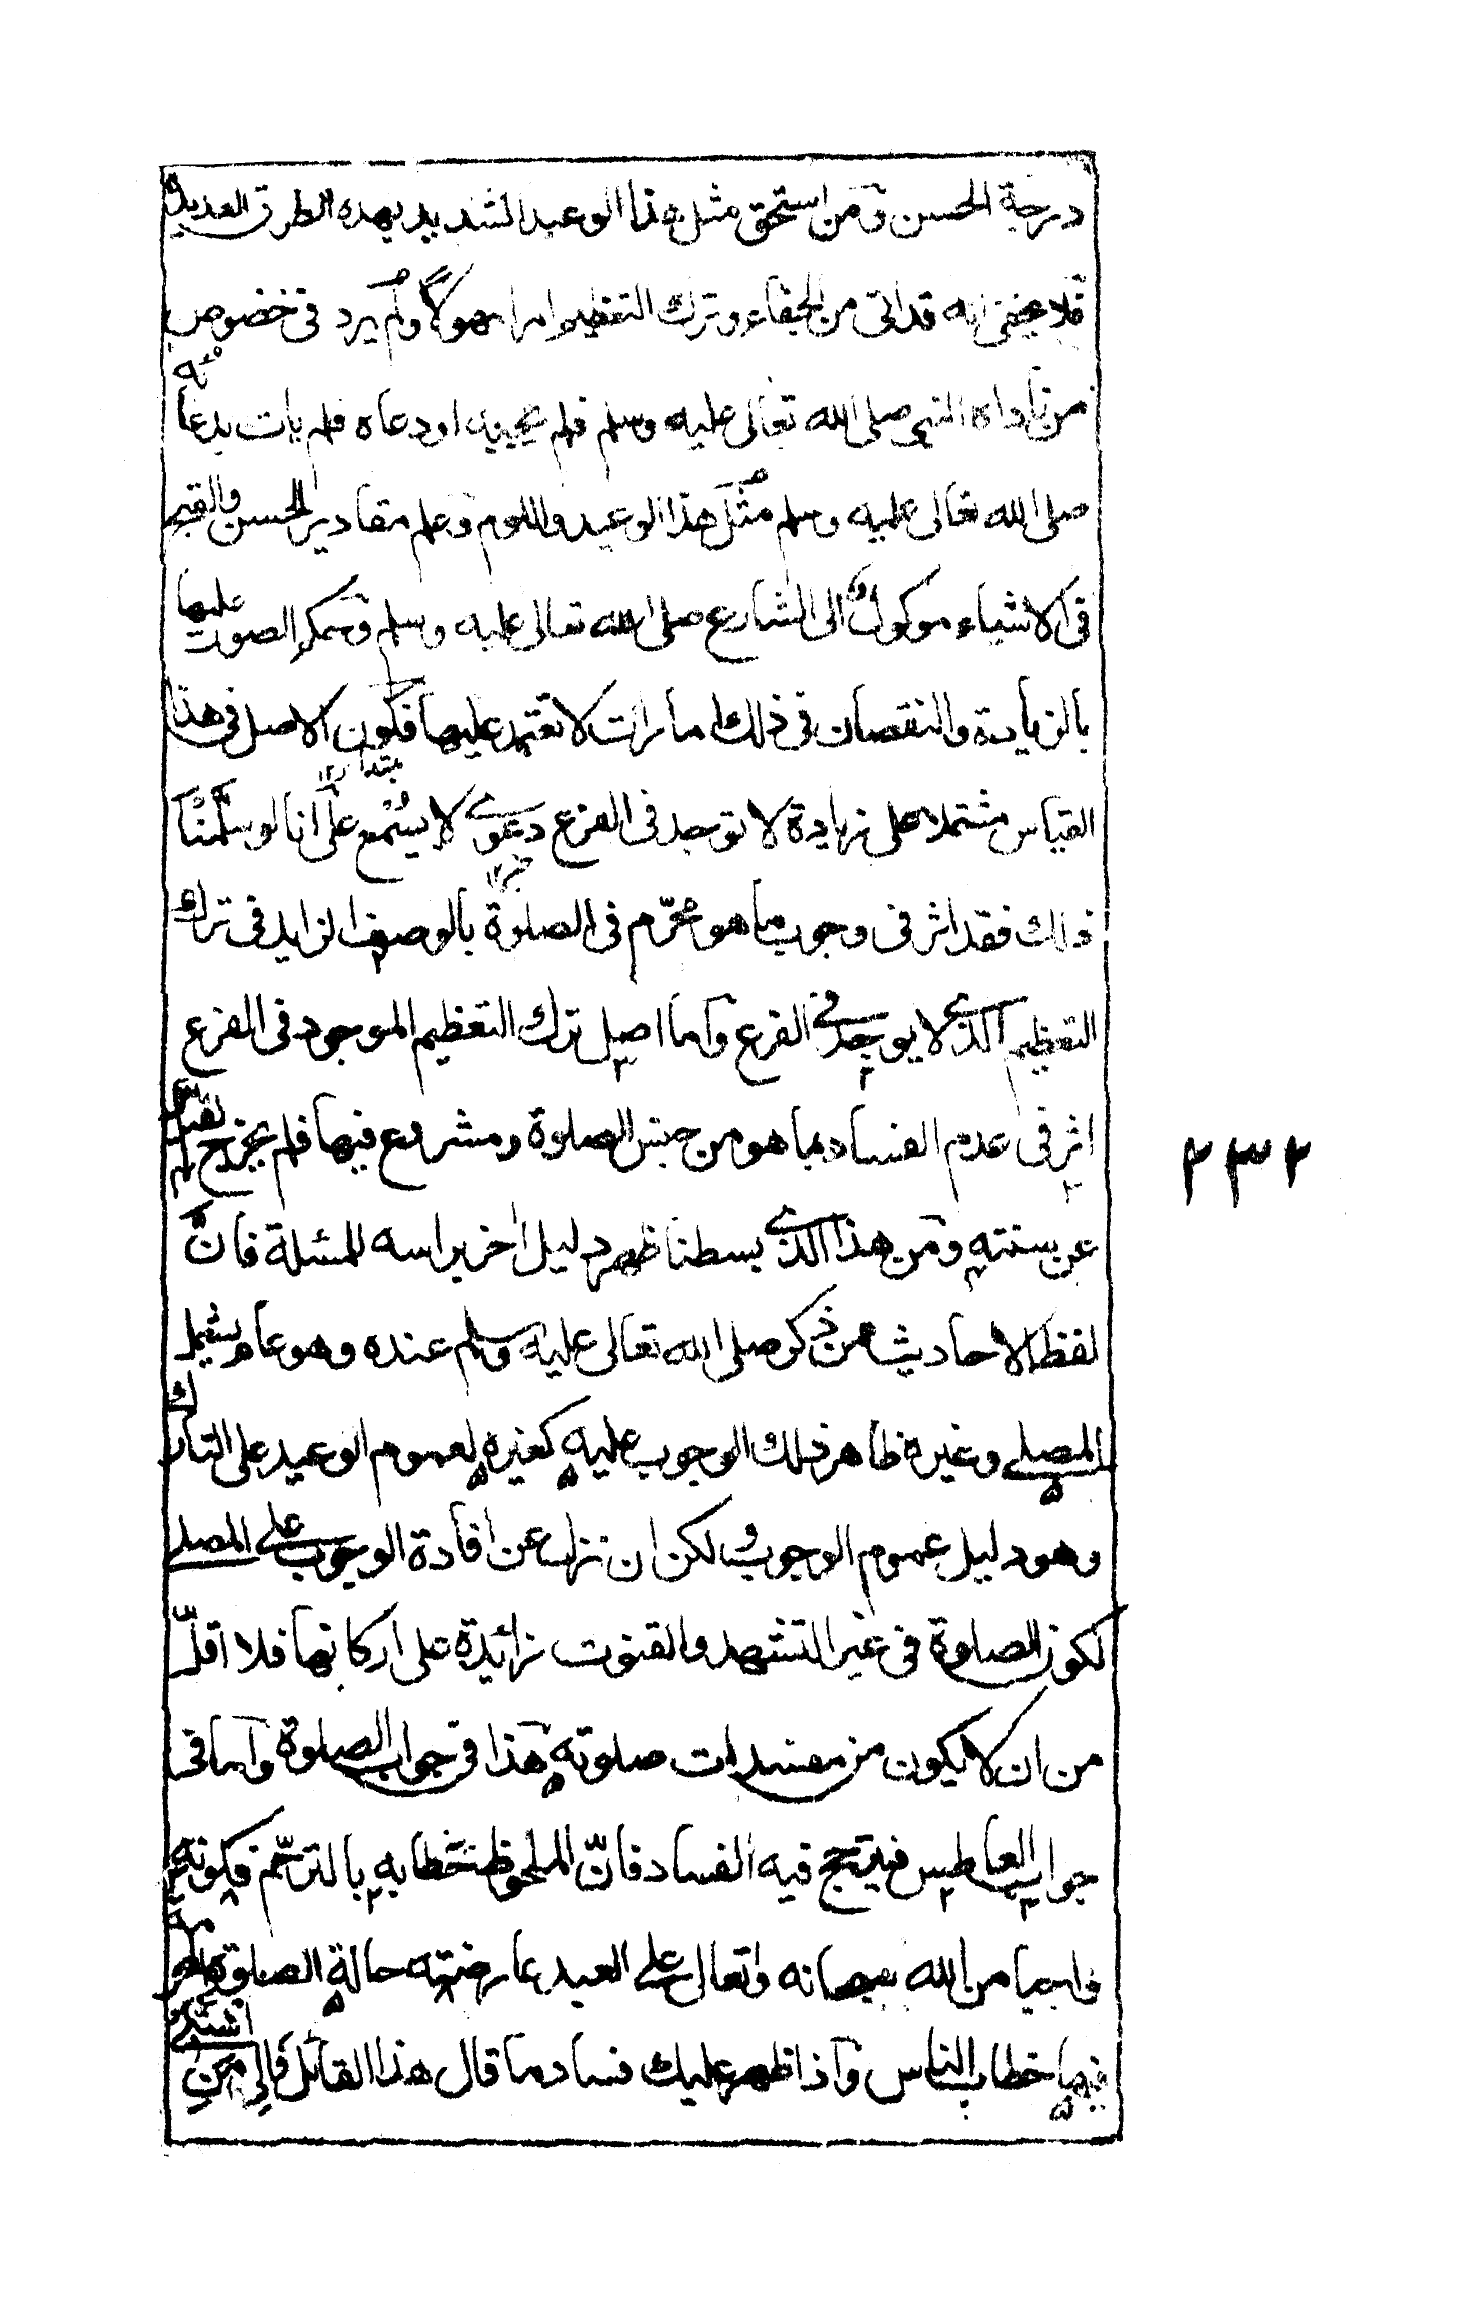 درجة الحسن ومن استحق مثل هذا الوعيد الشديد بهذه الطرق العديدة
فلا يخفى انه قد اتى من الجفاء وترك التعظيم امرا مهولا ولم يرد فى خصوص
من ناداه النبى صلى الله تعالى عليه وسلم فلم يجيبه او دعاه فلم يات بدعائه
صلى الله تعالى عليه وسلم مثل هذا الوعيد واللوم وعلم مقادير الحسن والقبح
فى الاشياء موكول الى الشارع صلى الله تعالى عليه وسلم وتمكن الصوت عليها
بالزيادة والنقصان فى ذلك امارات لا نعتمد عليها فكون الاصل فى هذا
القياس مشتملا على زيادة لا توجد فى الفرع دعوى لا يسمع على انا لو سلمنا
ذلك فقد اثر فى وجوب ما هو محرّم فى الصلوة بالوصف الزايد فى ترك
التعظيم الذى لا يوجد فى الفرع واما اصل ترك التعظيم الموجود فى الفرع
اثر فى عدم الفساد بما هو من جنس الصلوة ومشروع فيها فلم يخرج القياس
عن سنته ومن هذا الذى بسطنا ظهر دليل اخر براسه للمسئلة فانّ
لفظ الاحاديث من ذكر صلى الله تعالى عليه وسلم عنده وهو عام يشمل
المصلى وغيره ظاهر ذلك الوجوب عليه كغيره لعموم الوعيد على التارك
وهو دليل عموم الوجوب ولكن ان نزلت عن افادة الوجوب على المصلى
لكون الصلوة فى غير التشهد والقنوت زائدة على اركانها فلا اقلّ
من ان لا يكون من مفسدات صلوته هذا فى جواب الصلوة واما فى
جواب العاطس فيترجح فيه الفساد فانّ الملحوظ خطابه بالترحّم فكونه
واجبا من الله سبحانه وتعالى على العبد عارضته حالة الصلوة
فيها خطاب الناس واذا ظهر عليك فساد ما قال هذا القائل فالى من
٢٣٢